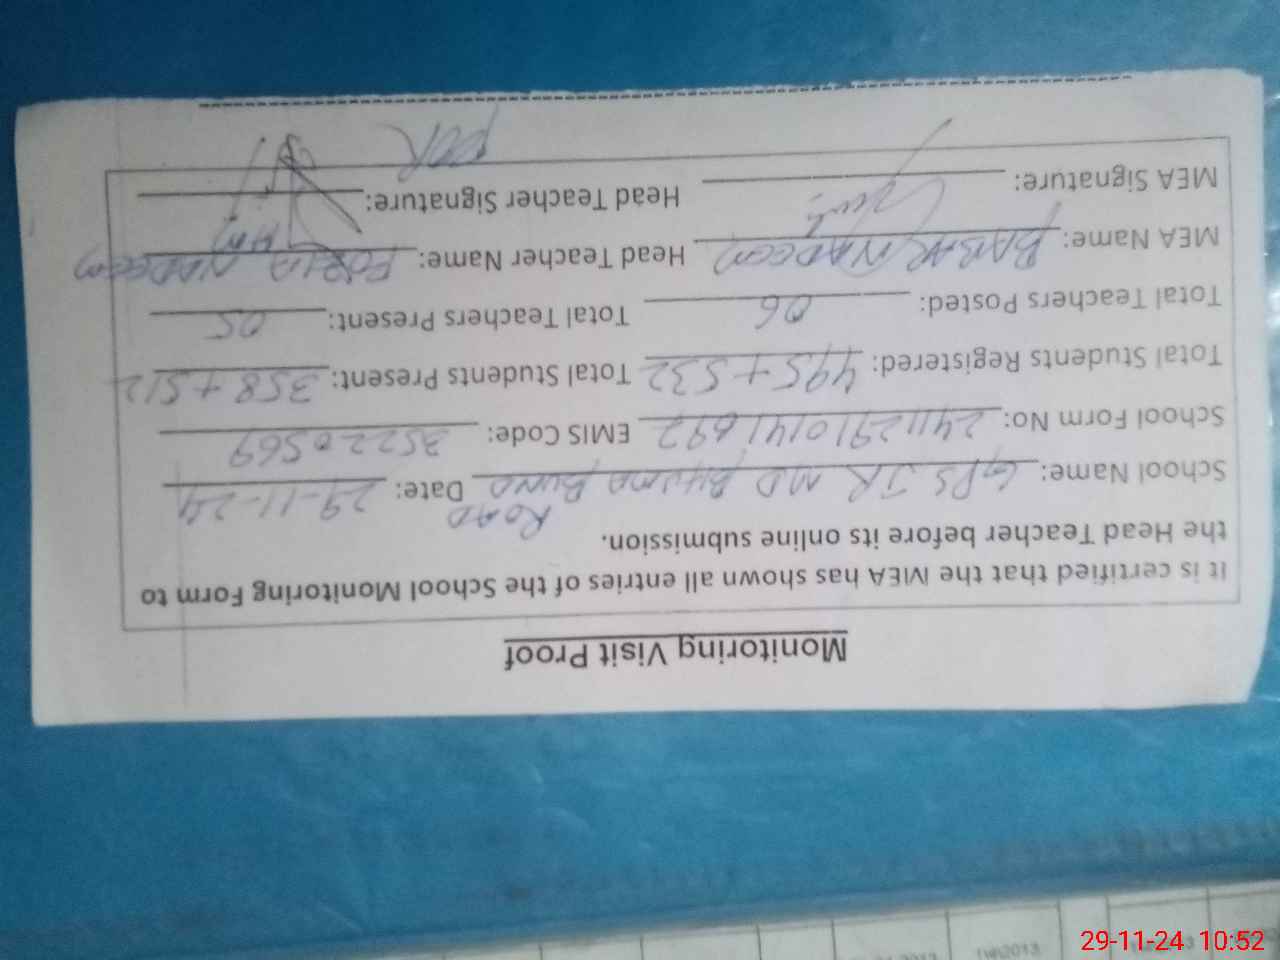 Monitoring Visit Proof
It is certified that the MEA has shown all entries of the School Monitoring Form to
the Head Teacher before its online submission.
School Name: GPS JR MD BHUMA BUND ROAD Date: 29-11-24
School Form No: 2411291014 EMIS Code: 35220569
Total Students Registered: 495+532 Total Students Present: 358+512
Total Teachers Posted: 06 Total Teachers Present: 05
MEA Name: BABAR NADEEM Head Teacher Name: NADEEM
MEA Signature: Head Teacher Signature:
29-11-24 10:52